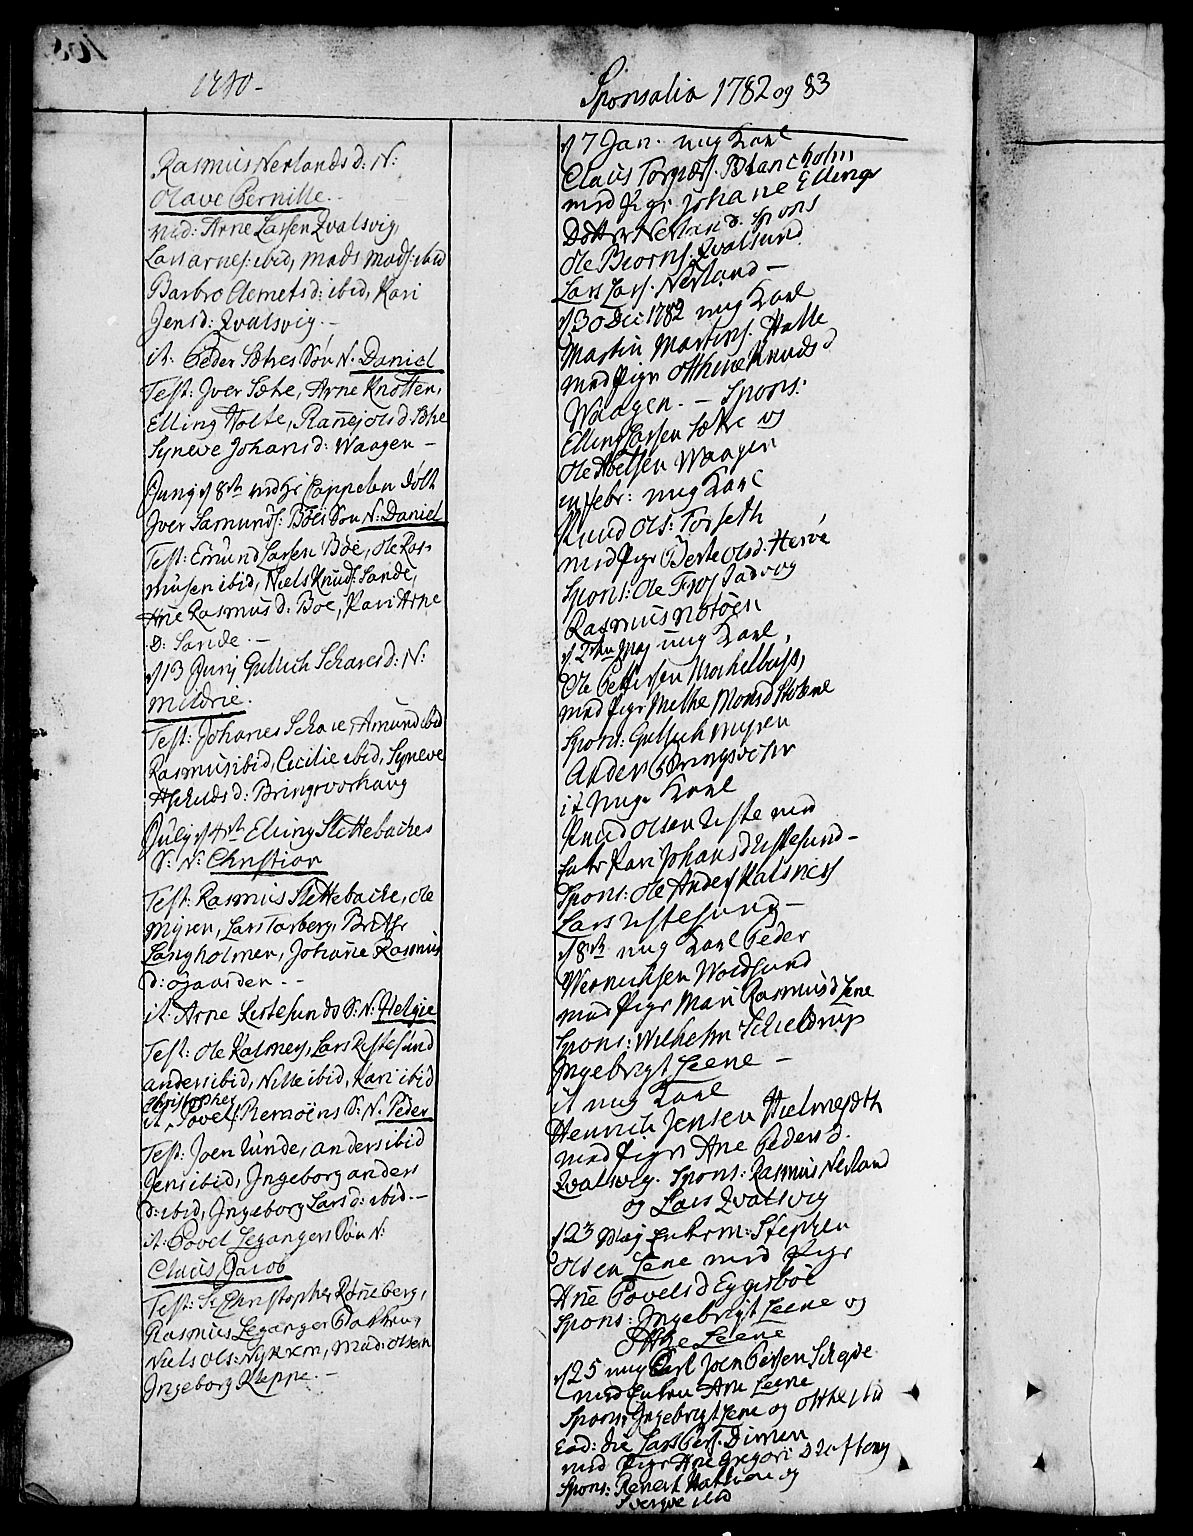 1780-
Rasmus Nerlands d: N:
Olave Pernille.-
Mad: Arne Larsen Kvalsvig,
Lars arnes: ibid, Mads Mads: ibid
Barbro Clemets d: ibid, Kari
Jens d: Kvalsvig.-
it: Peder Sætres Søn N: Daniel
Test: Iver Sætre, Arne Knotten,
Elling Holte, Ranej ols d: Sætre
Syneve Johans d: Waagen -
Juny d 8de ved Hr Cappelen døbt
Iver Samunds: Böes Søn N: Daniel
Test: Emund Larsen Böe, Ole Ras-
musen ibid, Niels Knuds: Sande,
Ane Rasmus d: Böe, Kari Arne
D: Sande.-
d 13 Junij Gullich Schares d: N:
Mildrie.
Test: Johanes Schare, Amund ibid
Rasmus ibid, Cicilie ibid, Syneve
d: Bringsvorhaug
July d 4de Elling Slettebackes
S: N: Christian
Test: Rasmus Slettebacke, Ole
Myren, Lars Torberg, Brithe
Langholmen, Johane Rasmus
d: Øgaarden.--
it: Arne Ristesunds S: N: Helgie
Test: Ole Kalsnes, Lars Ristesund
anders ibid, Nille ibid, Kari ibid
Christopher
it: Povel: Remöens S: N: Peder
Test: Joen Runde, anders ibid
Jens ibid, Ingeborg anders
d: ibid, Ingeborg Lars d: ibid.-
it: Povel Legangers Søn N:
Claus Jacob
Test: Sr Christopher Röneberg,
Rasmus Leganger
Niels Ols: Myklen, Mad: Olsen
Ingeborg Kleppe.-
Sponsalia 1782 og 83
d 7 Jan. ung Karl
Claus Blancholm
med Pige Johane Ellings
Dotter Nerland. spons
Ole Biörns: Kvalsund
Lars Lars: Nerland -
d 30 Dec 1782 ung Karl
Martin Martins: Halle
med Pige Othine Knuds d
Waagen.- Spons:
Elling Larsen Sætre og
Ole Abelsen Waagen
en febr: ung Karl
Knud Ols: Torseth
med Pige Berte Ols d: Herøe
Spons: Ole Frøystadvog
Rasmus Notöen
d 2den Maj ung Karl,
Ole Pettersen Mochelbust,
med Pige Methe Mons d Stokene
Spons: Gullich Myren
Anders Bringsvor
it unge Karl
Knud Olsen Riste med
Enke Kari Johans d Ristesund-
Spons: Ole Anders Kalsnes
Lars Ristesund-
d 8de ung Karl Peder
Wernichsen Woldsund
med Pige Mari Rasmus d Leene
Spons: Wilhelm Schieldrup
Ingebrigt Leene -
it ung Karl
Henrich Jensen Hielmeseth
med Pige Ane Peders d.
Kvalsvig. Spons: Rasmus Nerland
og Lars Kvalsvig
d 23 Maj Enkem: Stephen
Olsen Leene med Pige
Ane Povels d Eggesböe
Spons: Ingebrigt Leene og
Otthe Leene
d 25 ung Carl Joen Persen
med Enken Ane Leene
Spons: Ingebrigt Leene og Otthe ibid
Eod: die Lars Pers: Dimen
med Pige Ane Gregori
Spons: Renert og
Sverqve ibid